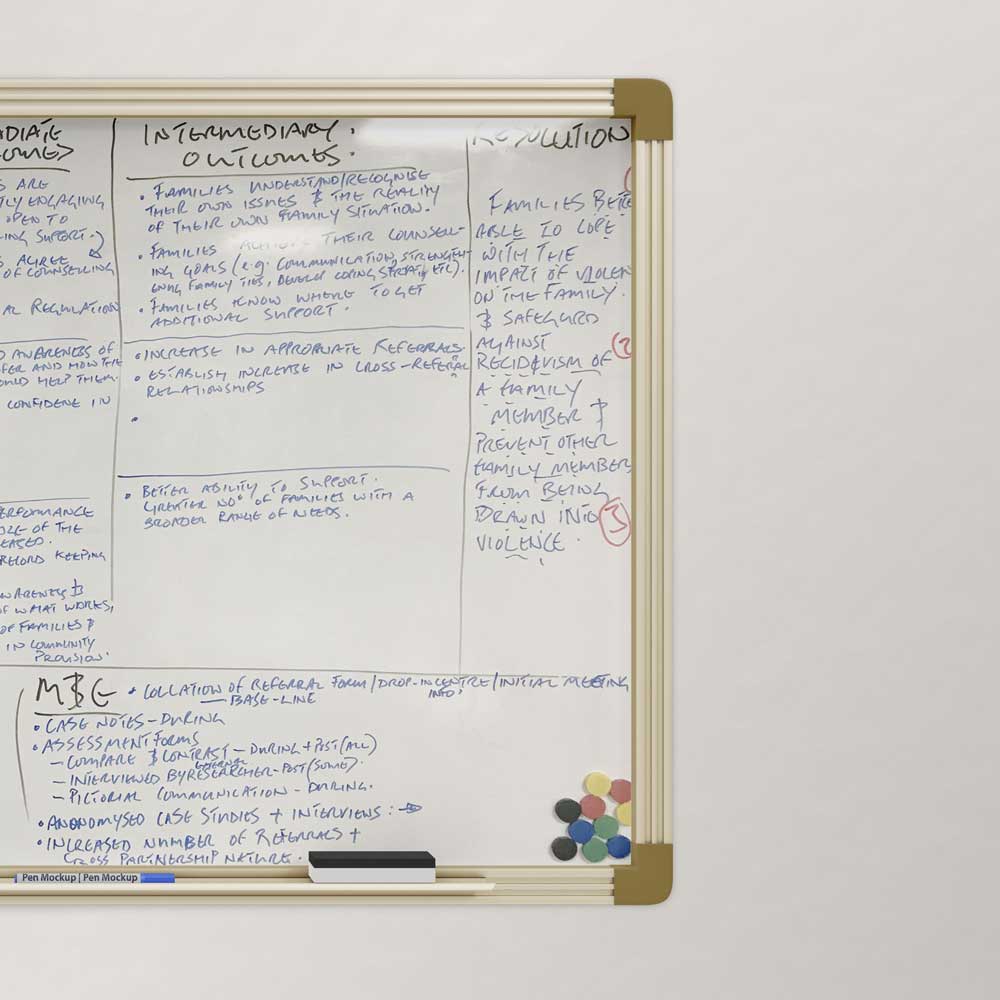 DIATE
OMES
S ARE
TLY ENGAGING
OPEN TO
ING SUPPORT.
S AGREE
OF COUNSELLING
AL REGULATION
D AWARENESS OF
FER AND HOW THE
OULD HELP THEM.
CONFIDENE IN
ERFORMANCE
OLE OF THE
EASED.
RECORD KEEPING
WARENESS &
OF WHAT WORKS,
OF FAMILIES &
IN COMMUNITY
PROVISION.
INTERMEDIARY.
OUTCOMES.
• FAMILIES UNDERSTAND/RECOGNISE
THEIR OWN ISSUES & THE REALITY
OF THEIR OWN FAMILY SITUATION.
• FAMILIES ACHIEVE THEIR COUNSEL-
ING GOALS (e.g. COMMUNICATION, STRENGTH-
ENING FAMILY TIES, DEVELOP COPING STRATS, ETC).
• FAMILIES KNOW WHERE TO GET
ADDITIONAL SUPPORT.
• INCREASE IN APPROPRIATE REFERRALS.
• ESTABLISH INCREASE IN CROSS-REFERAL
RELATIONSHIPS
•
• BETTER ABILITY TO SUPPORT.
GREATER NOº OF FAMILIES WITH A
BROADER RANGE OF NEEDS.
RESOLUTION
FAMILIES BETTE
ABLE TO COPE
WITH THE
IMPACT OF VIOLEN
ON THE FAMILY.
& SAFEGUARD
AGAINST
RECIDIVISM OF
A FAMILY
MEMBER &
PREVENT OTHER
FAMILY MEMBERS
FROM BEING
DRAWN INTO
VIOLENCE.
2
3
M&E
• COLLATION OF REFERRAL FORM/DROP-IN CENTRE/INITIAL MEETING
INFO
— BASE-LINE
• CASE NOTES - DURING
• ASSESSMENT FORMS
- COMPARE & CONTRAST - DURING + POST (ALL)
- INTERVIEWED BY EXTERNAL RESEARCHER - POST (SOME).
- PICTORIAL COMMUNICATION - DURING.
• ANONOMYSED CASE STUDIES + INTERVIEWS: →
• INCREASED NUMBER OF REFERRALS +
CROSS PARTNERSHIP NATURE.
Pen Mockup | Pen Mockup